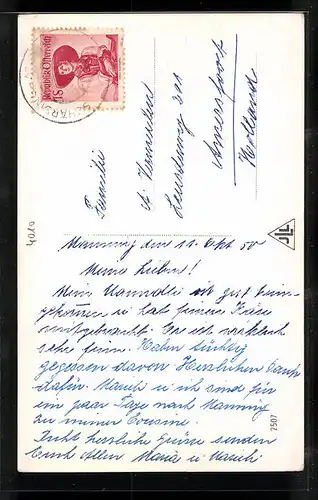 Republik Österreich
1S
Familie
A. Vermeulen
Amersfoort
Holland
4010
JLL
den 11. Okt 50
Meine Lieben!
Mein ist gut heim-
gekommen u. hat feinen Käse
mitgebracht. Er ist wirklich
sehr fein. Habe tüchtig
gegessen davon Herzlichen Dank
dafür. u. ich sind für
ein paar Tage nach
zu meiner Cousine.
Recht herzliche Grüsse senden
Euch Allen Maria u.
2507